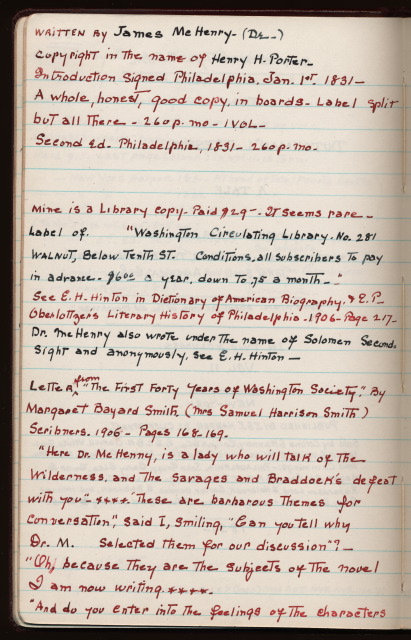 WRITTEN By James McHenry- (Dr.-)
Copyright in the name of Henry H. Porter-
Introduction Signed Philadelphia, Jan. 1st, 1831-
A whole, honest, good copy, in boards- Label split
but all there - 260p. mo- 1 VOL-
Second Ed- Philadelphia, 1831- 260p. mo-
Mine is a Library copy- Paid $29-. It seems rare-
Label of. "Washington Circulating Library. No. 281
WALNUT, Below Tenth ST. Conditions, all subscribers to pay
in advance- $6oo a year, down To .75 a month-"
See E. H. Hinton in Dictionary of American Biography. & E. P-
Oberholtzer's Literary History of Philadelphia-1906- Page 217-
Dr. McHenry also wrote under the name of Solomen Second-
Sight and anonymously, see E. H. Hinton-
Letter from "The First Forty Years of Washington Society." By
Margaret Bayard Smith. (Mrs Samuel Harrison Smith)
Scribners. 1906- Pages 168-169-
"Here Dr. McHenny, is a lady who will talk of The
Wilderness, and The Savages and Braddock's defeat
with you"- **** "These are barbarous Themes for
Conversation", said I, smiling, "Can you tell why
Dr. M. Selected them for our discussion"?-
"Oh, because They are the subjects of the novel
I am now writing ****.
"And do you enter into the feelings of the characters